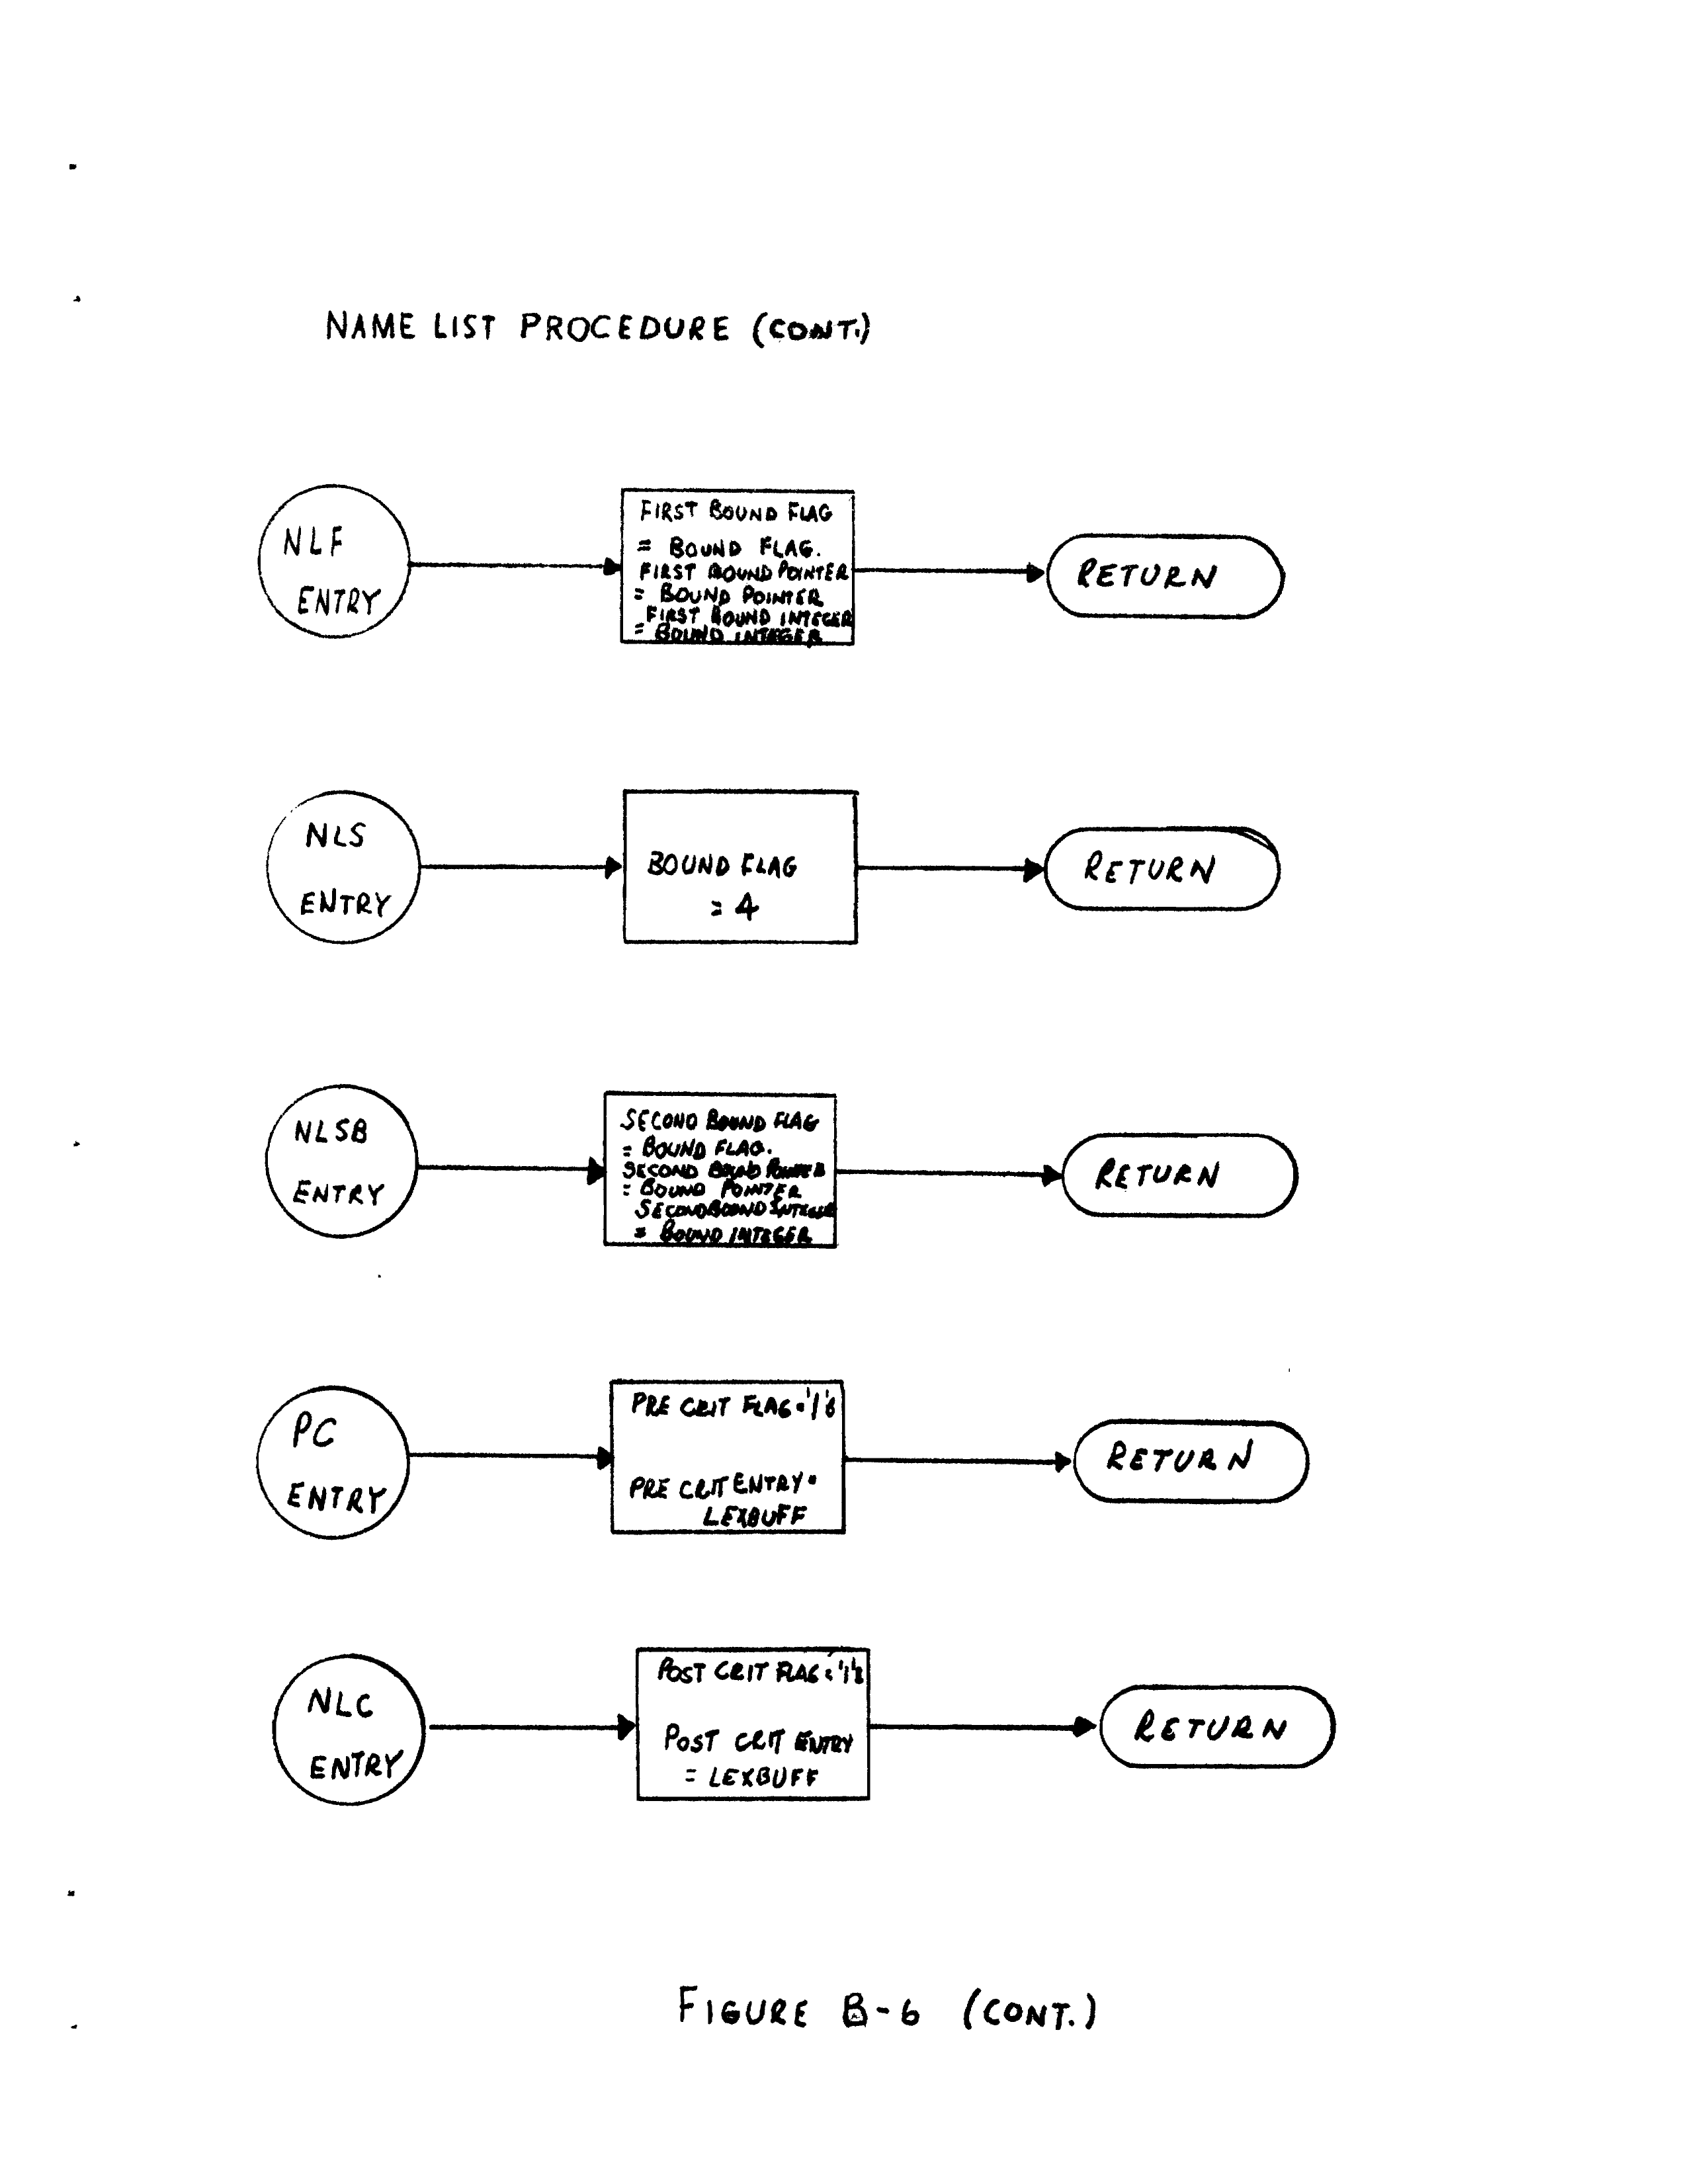 NAME LIST PROCEDURE (CONT.)
NLF
ENTRY
FIRST BOUND FLAG
= BOUND FLAG.
FIRST BOUND POINTER
= BOUND POINTER
FIRST BOUND INTEGER
= BOUND INTEGER
RETURN
NLS
ENTRY
BOUND FLAG
= 4
RETURN
NLSB
ENTRY
SECOND BOUND FLAG
= BOUND FLAG.
SECOND BOUND POINTER
= BOUND POINTER
SECOND BOUND INTEGER
= BOUND INTEGER
RETURN
PC
ENTRY
PRE CRIT FLAG = '1'B
PRE CRIT ENTRY =
LEXBUFF
RETURN
NLC
ENTRY
POST CRIT FLAG = '1'B
POST CRIT ENTRY
= LEXBUFF
RETURN
FIGURE B-6 (CONT.)